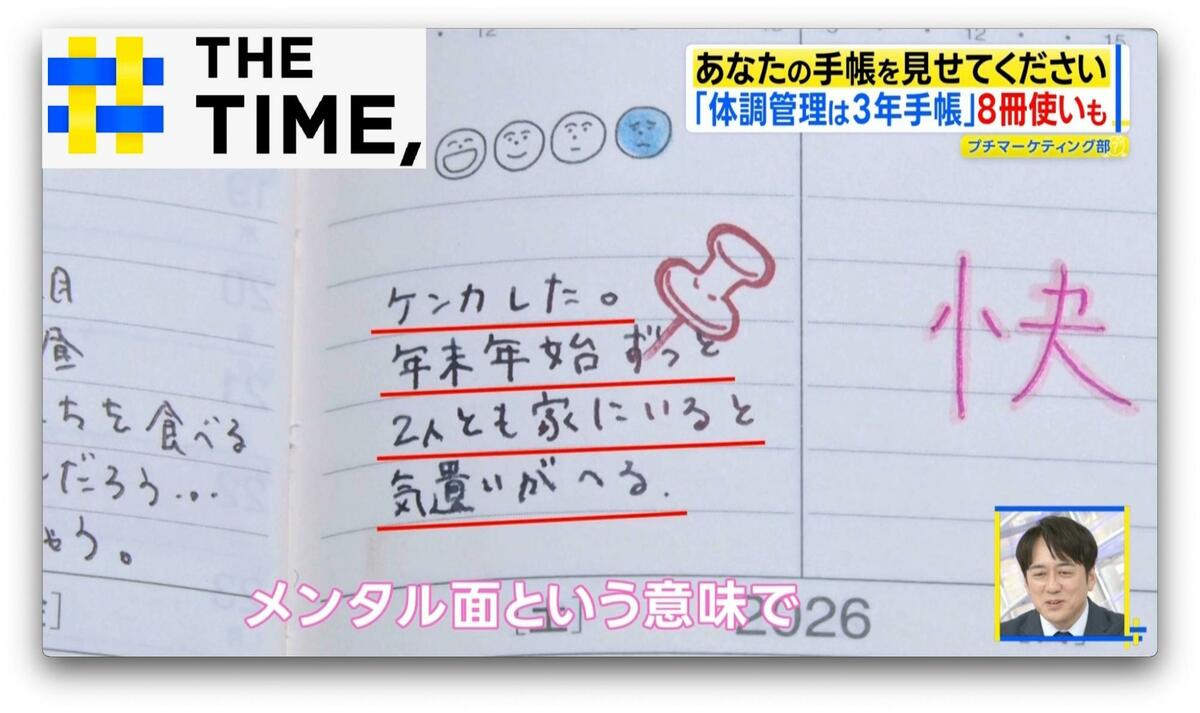 THE
TIME,
あなたの手帳を見せてください
「体調管理は3年手帳」8冊使いも
プチマーケティング部
12
15
12
15
19
20
21
22
ケンカした。
年末年始ずっと
2人とも家にいると
気遣いがへる.
快
を食べる
だろう…
う。
メンタル面という意味で
[土]
2026